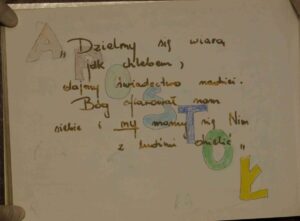 „Dzielmy się wiarą
jak chlebem,
dajmy świadectwo nadziei.
Bóg ofiarował nam
siebie i my mamy się Nim
z ludźmi dzielić"
APOSTOŁ